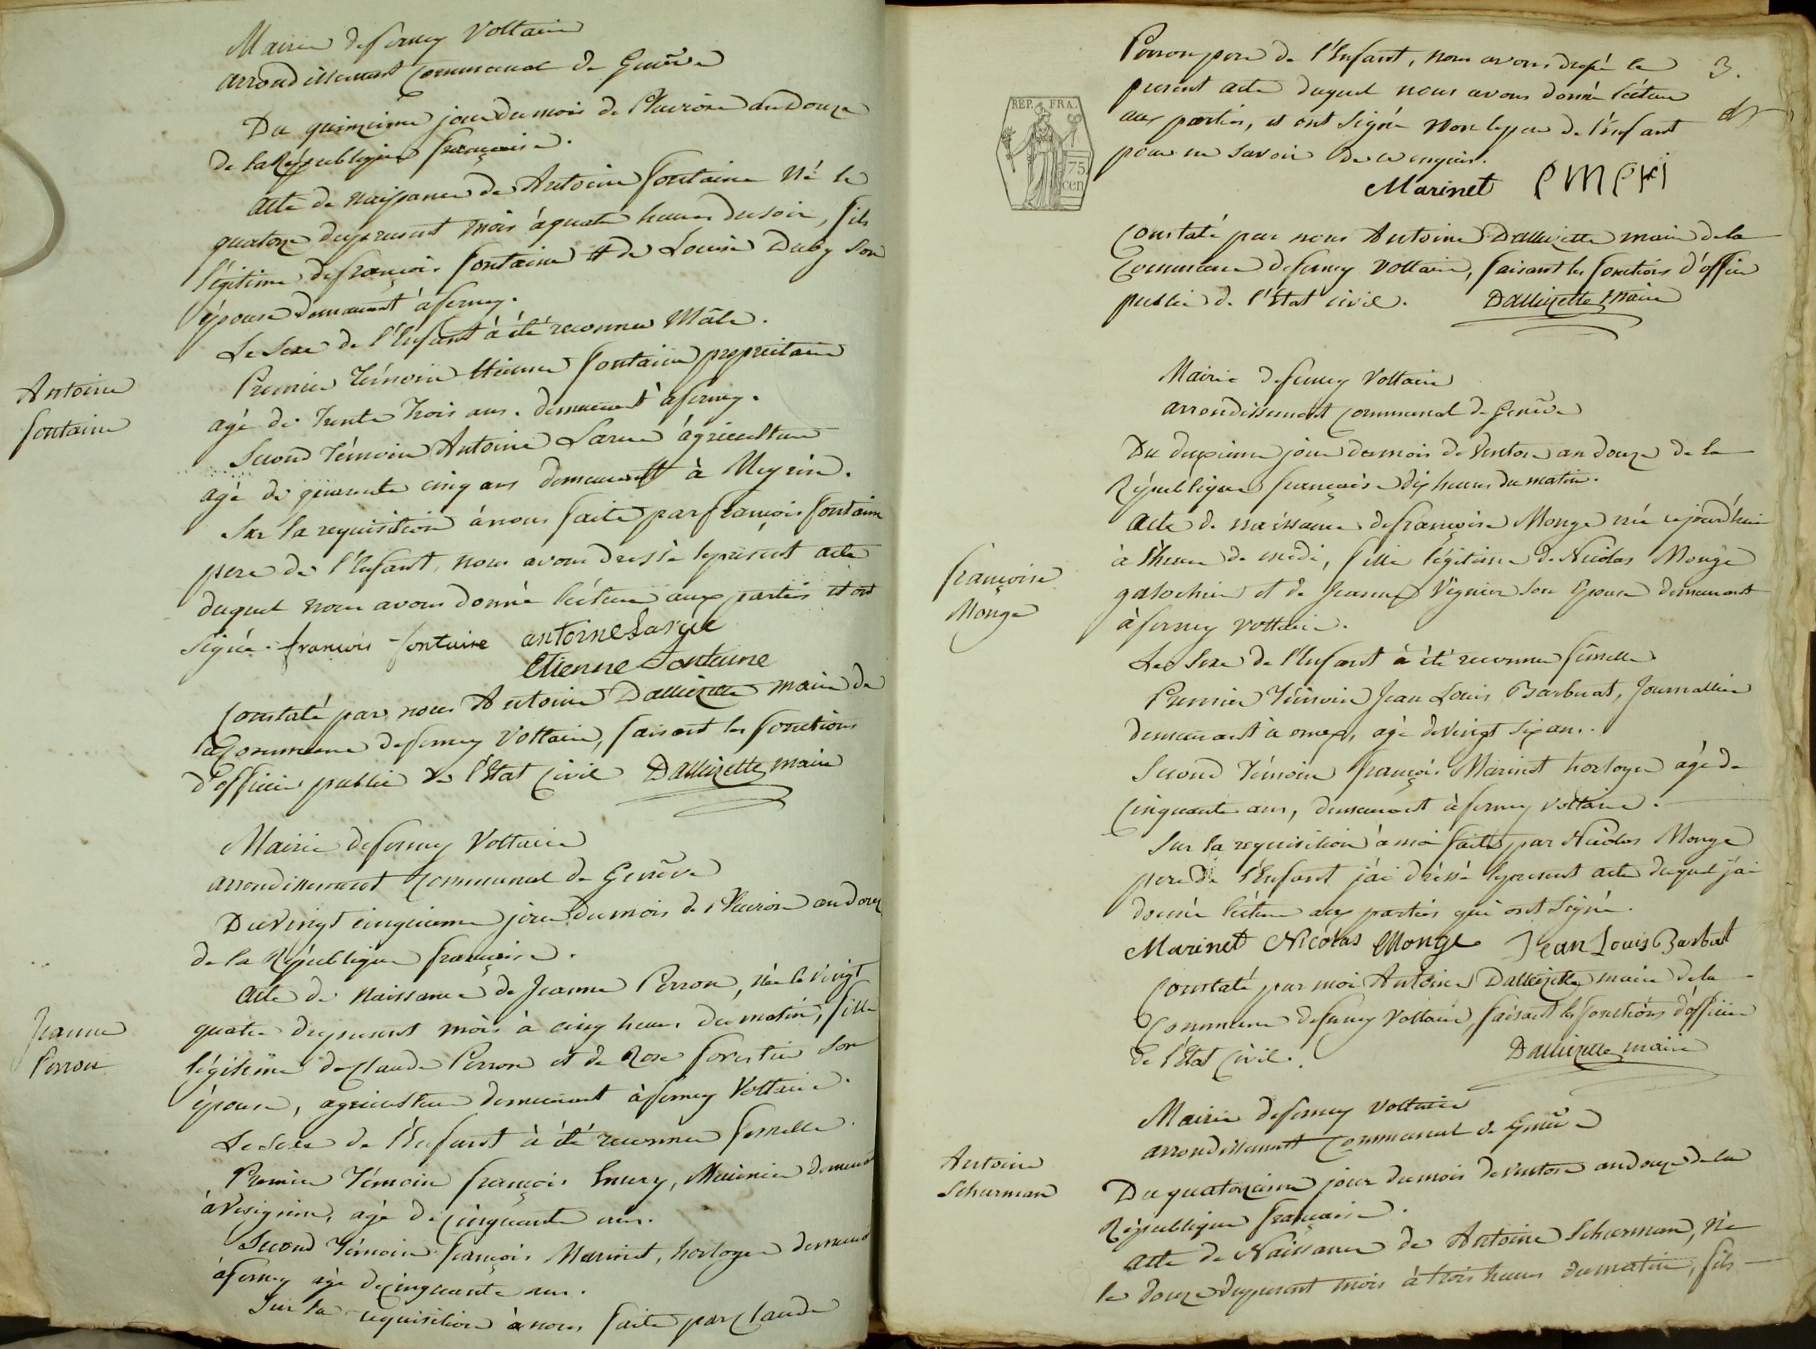 Mairie de ferney Voltaire
arrondissement Communal de Genêve
Du quinzieme jour du mois de Pluviose an Douze
de la République française.
Acte de naissance de Antoine fontaine Né le
quatorze du present mois à quatre heures du soir, fils
légitime de françois fontaine & de Louise Duby son
épouse demeurant à ferney.
Le Sexe de l'Enfant à été reconnu Mâle.
Antoine
fontaine
Premier Témoin Etienne fontaine propriétaire
agé de trente trois ans. demeurant à ferney.
Second Témoin Antoine Larue agriculteur
agé de quarante cinq ans demeurant à Meyrin.
Sur la requisition à nous faite par françois fontaine
pere de l'Enfant, nous avons dressé le présent acte
duquel nous avons donné lécture aux parties et ont
signé. françois fontaine antoine Larue
Etienne Fontaine
Constaté par nous Antoine Dallizette maire de
la Commune de ferney Voltaire, faisant les fonctions
d'officier public de l'Etat Civil Dallizette maire
Mairie de ferney Voltaire
arrondissement Communal de Genêve
Du vingt cinquieme jour du mois de Pluviose an douze
de la République française.
Acte de Naissance de Jeanne Perron, née le vingt
quatre du present mois à cinq heures du matin, fille
Jeanne
Perron
légitime de Claude Perron et de Rose forestier son
épouse, agriculteur demeurant à ferney Voltaire.
Le Sexe de l'Enfant à été reconnu femelle.
Premier Témoin françois Emery, Meunier demeurant
à Vésegnin, agé de cinquante ans.
Second Témoin françois Marinet, horloger demeurant
à ferney agé de cinquante ans.
Sur la requisition à nous faite par Claude
3.
Perron pere de l'Enfant, nous avons dressé le
present acte duquel nous avons donné lécture
aux parties, et ont signé non le pere de l'enfant
pour ne savoir de ce enquis.
REP. FRA.
75
cen
Marinet
Constaté par nous Antoine Dallizette maire de la
Commune de ferney Voltaire, faisant les fonctions d'officier
public de l'Etat Civil. Dallizette maire
Mairie de ferney Voltaire
arrondissement Communal de Genêve
Du deuxieme jour du mois de Ventose an douze de la
République française dix heures du matin.
Acte de naissance de françoise Monge née cejourd'huy
à l'heure de midi, fille légitime de Nicolas Monge
françoise
Monge
galochier et de Jeanne Vignier son Epouse demeurant
à ferney voltaire.
Le Sexe de l'Enfant à été reconnu fémelle
Premier Témoin Jean Louis Barburat, Journallier
demeurant à ornex, agé de vingt six ans.
Second Témoin françois Marinet horloger âgé de
Cinquante ans, demeurant à ferney Voltaire.
Sur la requisition à moi faite par Nicolas Monge
pere de l'Enfant j'ai dréssé le present acte duquel j'ai
donné lécture aux parties qui ont signé.
Marinet Nicolas Monge Jean Louis Barbat
Constaté par moi Antoine Dallizette maire de la
Commune de ferney Voltaire, faisant les fonctions d'officier
de l'Etat Civil. Dallizette maire
Mairie de ferney Voltaire
arrondissement Communal de Genêve
Antoine
Schurman
Du quatorzieme jour du mois de ventose an douze de la
République française.
Acte de Naissance de Antoine Schurman, né
le douze du present mois à trois heures du matin, fils